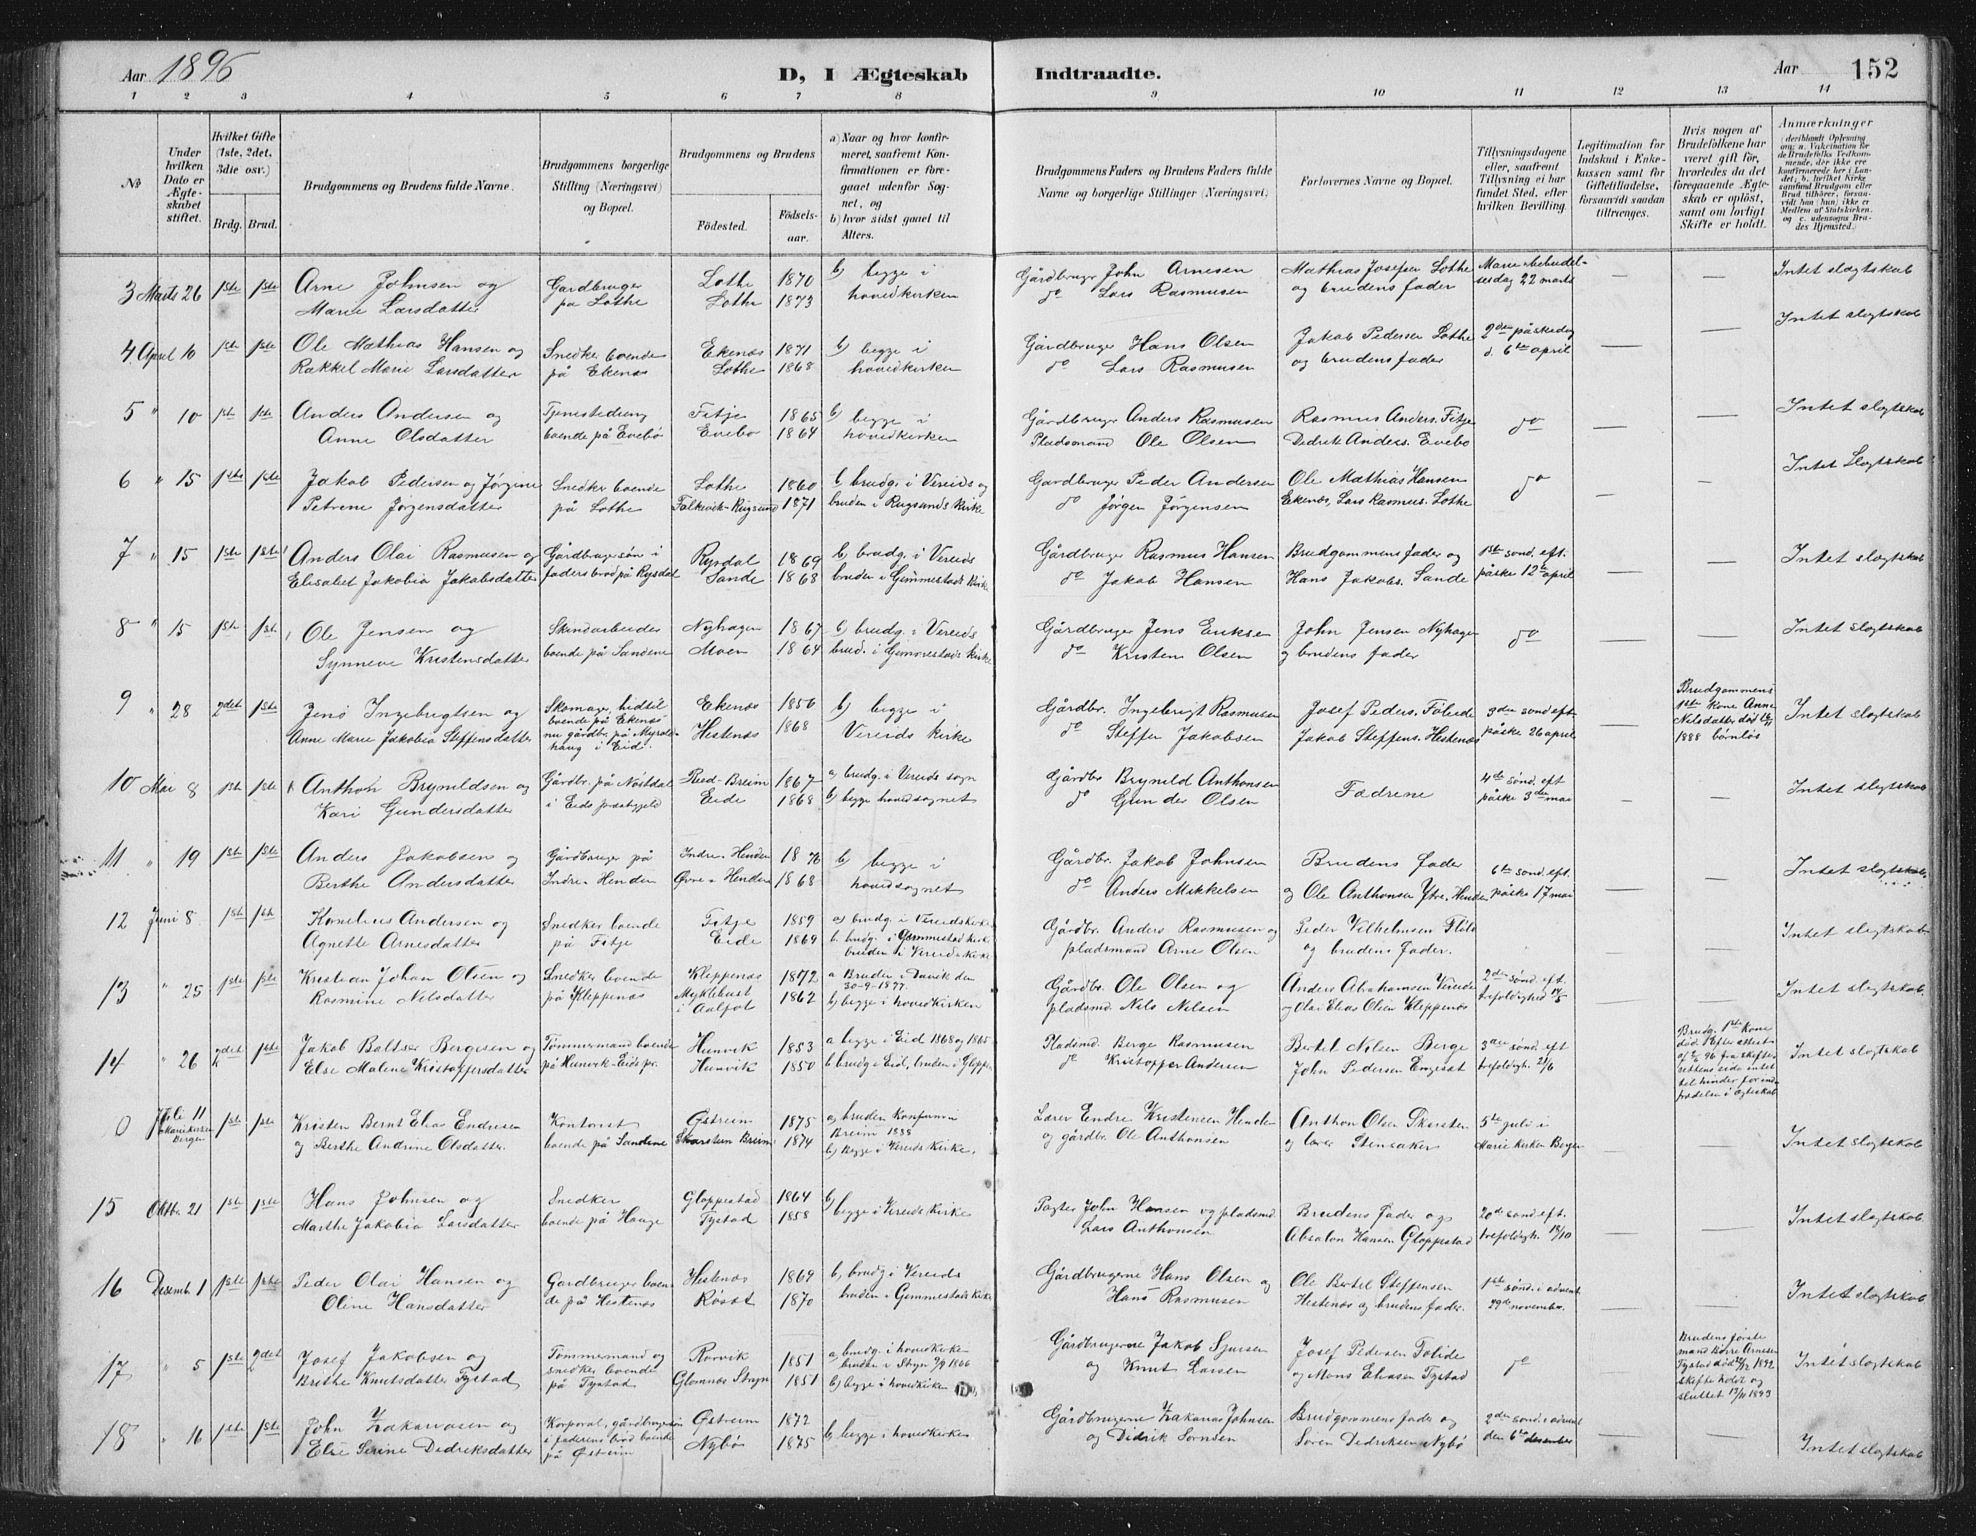 Aar 1896
D, I Ægteskab Indtraadte.
Aar
152
1 2 3 4 5 6 7 8 9 10 11 12 13 14
No
Under hvilken Dato er Ægteskabet stiftet.
Hvilket Gifte (1ste, 2det, 3die osv.)
Brdg. Brud.
Brudgommens og Brudens fulde Navne.
Brudgommens borgerlige Stilling (Næringsvei) og Bopæl.
Brudgommens og Brudens
Fødested.
Fødsels-aar.
a) Naar og hvor konfirmeret, saafremt Konfirmationen er foregaaet udenfor Sognet, og
b) hvor sidst gaaet til Alters.
Brudgommens Faders og Brudens Faders fulde Navne og borgerlige Stillinger (Næringsvei)
Forlovernes Navne og Bopæl.
Tillysningsdagene eller, saafremt Tillysning ei har fundet Sted, efter hvilken Bevilling.
Legitimation for Indskud i Enkekassen samt for Giftetilladelse, forsaavidt saadan tiltrænges.
Hvis nogen af Brudefolkene har været gift før, hvorledes da det foregaaende Ægteskab er opløst, samt om lovligt Skifte er holdt.
Anmærkninger
3 Marts 26 1ste 1ste Arne Johnsen og Gårdbruger Lothe 1870 b) begge i Gårdbruger John Arnesen Mathias Josefsen Lothe Marie bebudel- — — Intet slægtskab
Marie Larsdatter på Lothe Lothe 1873 hovedkirken do Lars Rasmusen og brudens fader sesdag 22 marts
4 April 10 1ste 1ste Ole Mathias Hansen og Snedker boende Ekenæs 1871 b) begge i Gårdbruger Hans Olsen Jakob Pedersen Lothe 2den påskedag — — Intet slægtskab
Rakkel Marie Larsdatter på Ekenæs Lothe 1868 hovedkirken do Lars Rasmusen og brudens fader d. 6te april
5 " 10 1ste 1ste Anders Andersen og Tjenestedreng Fitje 1865 b) begge i Gårdbruger Anders Rasmusen Rasmus Anders. Fitje do — — Intet slægtskab
Anne Olsdatter boende på Evebø Evebø 1864 hovedkirken Pladsmand Ole Olsen Didrik Anders. Evebø
6 " 15 1ste 1ste Jakob Pedersen og Jørgine Snedker boende Lothe 1860 b brudg. i Vereids og Gårdbruger Peder Andersen Ole Mathias Hansen do — — Intet Slægtskab
Petrene Jørgensdatter på Lothe Falkevik-Rugsund 1871 bruden i Rugsunds kirke do Jørgen Jørgensen Ekenæs, Lars Rasmus. Lothe
7 " 15 1ste 1ste Anders Olai Rasmusen og Gårdbrugersøn i Rysdal 1869 b) brudg. i Vereids Gårdbruger Rasmus Hansen Brudgommens fader og 1ste sønd. eft. — — Intet slægtskab
Elisabet Jakobia Jakobsdatter faders brød på Rysdal Sande 1868 bruden i Gimmestads kirke do Jakob Hansen Hans Jakobs. Sande påske 12te april
8 " 15 1ste 1ste Ole Jensen og Skindarbeider Nyhagen 1867 b) brudg. i Vereids Gårdbruger Jens Eriksen John Jensen Nyhagen do — — Intet slægtskab
Synneve Kristensdatter boende på Sandene Moen 1864 brud. i Gimmestads kirke do Kristen Olsen og brudens fader
9 " 28 2det 1ste Jens Ingebrigtsen og Skomager, hidtil Ekenæs 1856 b) begge i Gårdbr. Ingebrigt Rasmusen Josef Peders. Følede 3die sønd eft — Brudgommens Intet slægtskab
Anne Marie Jakobia Steffensdatter boende på Ekenæs Hestenæs 1868 Vereids kirke do Steffen Jakobsen Jakob Steffens. Hestenæs påske 26 april 1ste kone Anne
nu gårdbr. på Nelsdatter død
haug i Eid. 1888 børnløs
10 Mai 8 1ste 1ste Anthon Brynildsen og Gårdbr. på Nøstdal Reed-Breim 1867 a) brudg. i Vereids sogn Gårdbr Brynild Anthonsen Fædrene 4de sønd. eft — — Intet slægtskab
Kari Gundersdatter i Eids prestegjeld Eide 1868 b) begge hovedsognet do Gunder Olsen påske 3die mai
11 " 19 1ste 1ste Anders Jakobsen og Gårdbruger på Indre-Henden 1870 b) begge i Gårdbr. Jakob Johnsen Brudens fader 6te sønd. eft. — — Intet slægtskab
Berthe Andersdatter Indre-Henden Øvre-Henden 1868 hovedsognet do Anders Mikkelsen og Ole Anthonsen Ytre Henden påske 17 mai
12 Juni 8 1ste 1ste Kornelius Andersen og Snedker boende Fitje 1859 a) brudg. i Vereids kirke Gårdbr. Anders Rasmusen og Peder Vilhelmsen — Intet slægtskab
Agnette Arnesdatter på Fitje Eide 1869 b. brudg. i Gimmestad kirke pladsmand Arne Olsen og brudens fader.
bruden i Vereids kirke
13 " 25 1ste 1ste Kristian Johan Olsen og Snedker boende Kleppenæs 1872 a Bruden i Davik den Gårdbr. Ole Olsen og Anders Abrahamsen Vereide 2den sønd. eft — — Intet slægtskab
Rasmine Nilsdatter på Kleppenæs Myklebust 1862 30-9-1877. pladsmd Nils Nilsen og Olai Elias Olsen Kleppenæs trefoldighed
i Aalfot b) begge i hovedkirken
14 " 26 2det 1ste Jakob Baltser Bergesen og Tømmermand boende Hunvik 1853 a begge i Eid 1868 og 1865 Pladsmd. Berge Rasmusen Bertel Nilsen Berge 3die sønd. eft — Brudg. 1ste kone Intet slægtskab
Else Malene Kristoffersdatter på Hunvik-Eids pr. Hunvik 1850 b brudg i Eid, bruden i Gloppen do Kristoffer Andersen John Pedersen trefoldigh. 21/6
0 Juli 11 1ste 1ste Kristen Bernt Elias Endresen Kontorist Østreim 1875 a) bruden konfirm i Lærer Endre Kristensen Henden Anthon Olsen Skarsten 5te juli i — — Intet slægtskab
Mariekirken Bergen og Berthe Andrine Olsdatter. boende på Sandene Skarsten Breim 1874 Breim 1888 og gårdbr. Ole Anthonsen og lærer Stensaker Marie kirken Bergen
b) begge i Vereids kirke.
15 Oktbr. 21 1ste 1ste Hans Johnsen og Snedker Gloppestad 1864 b) begge i Vereids kirke Pagter John Hansen og pladsmd Brudens fader og 20de sønd eft. — — Intet slægtskab
Marthe Jakobia Larsdatter boende på Hauge Tystad 1858 Lars Anthonsen Absalon Hansen Gloppestad trefoldigh. 18/10
16 Desemb. 1 1ste 1ste Peder Olai Hansen og Gårdbruger boen- Hestenæs 1869 b) brudg i Vereids Gårdbrugerne Hans Olsen og Ole Bertel Steffensen 1ste sønd. i advent — — Intet slægtskab
Oline Hansdatter de på Hestenæs Røsæt 1870 bruden i Gimmestads kirke Hans Rasmusen Hestenæs og brudens fader. 29de november.
17 " 5 1ste 2det Josef Jakobsen og Tømmermand og Rørvik 1851 a) brudg. i hovedkirken Gårdbrugerne Jakob Sjursen Josef Pedersen Følide do Brudens første Intet slægtskab
Brithe Knutsdatter Tystad snedker boende Glomnæs Stryn 1851 bruden i Stryn 1866 og Knut Larsen og Mons Eliasen Tystad mand Børre Arnesen
på Tystad b) begge i hovedkirken Tystad død 1892
skifte holdt og
sluttet 1893
18 " 16 1ste 1ste John Zakariasen og Korporal, gårdbrugersøn Østreim 1872 b) begge i hovedkirken Gårdbrugerne Zakarias Johnsen Brudgommens fader og 2den sønd. i advent — — Intet slægtskab
Else Serine Dedriksdatter i faderens brød boende Nybø 1875 og Didrik Sørensen Søren Dedriksen Nybø den 6te desember
på Østreim